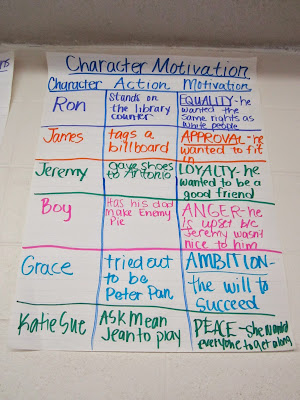 Character Motivation
Character Action Motivation
Ron
Stands on
the library
counter
EQUALITY-he
wanted the
same rights as
white people
James
tags a
billboard
APPROVAL-he
wanted to fit
in
Jeremy
gave shoes
to Antonio
LOYALTY-he
wanted to be a
good friend
Boy
Has his dad
make Enemy
Pie
ANGER-he
is upset b/c
Jeremy wasn't
nice to him
Grace
tried out
to be
Peter Pan
AMBITION-
the will to
succeed
Katie Sue
ASK Mean
Jean to play
PEACE-she wanted
everyone to get along